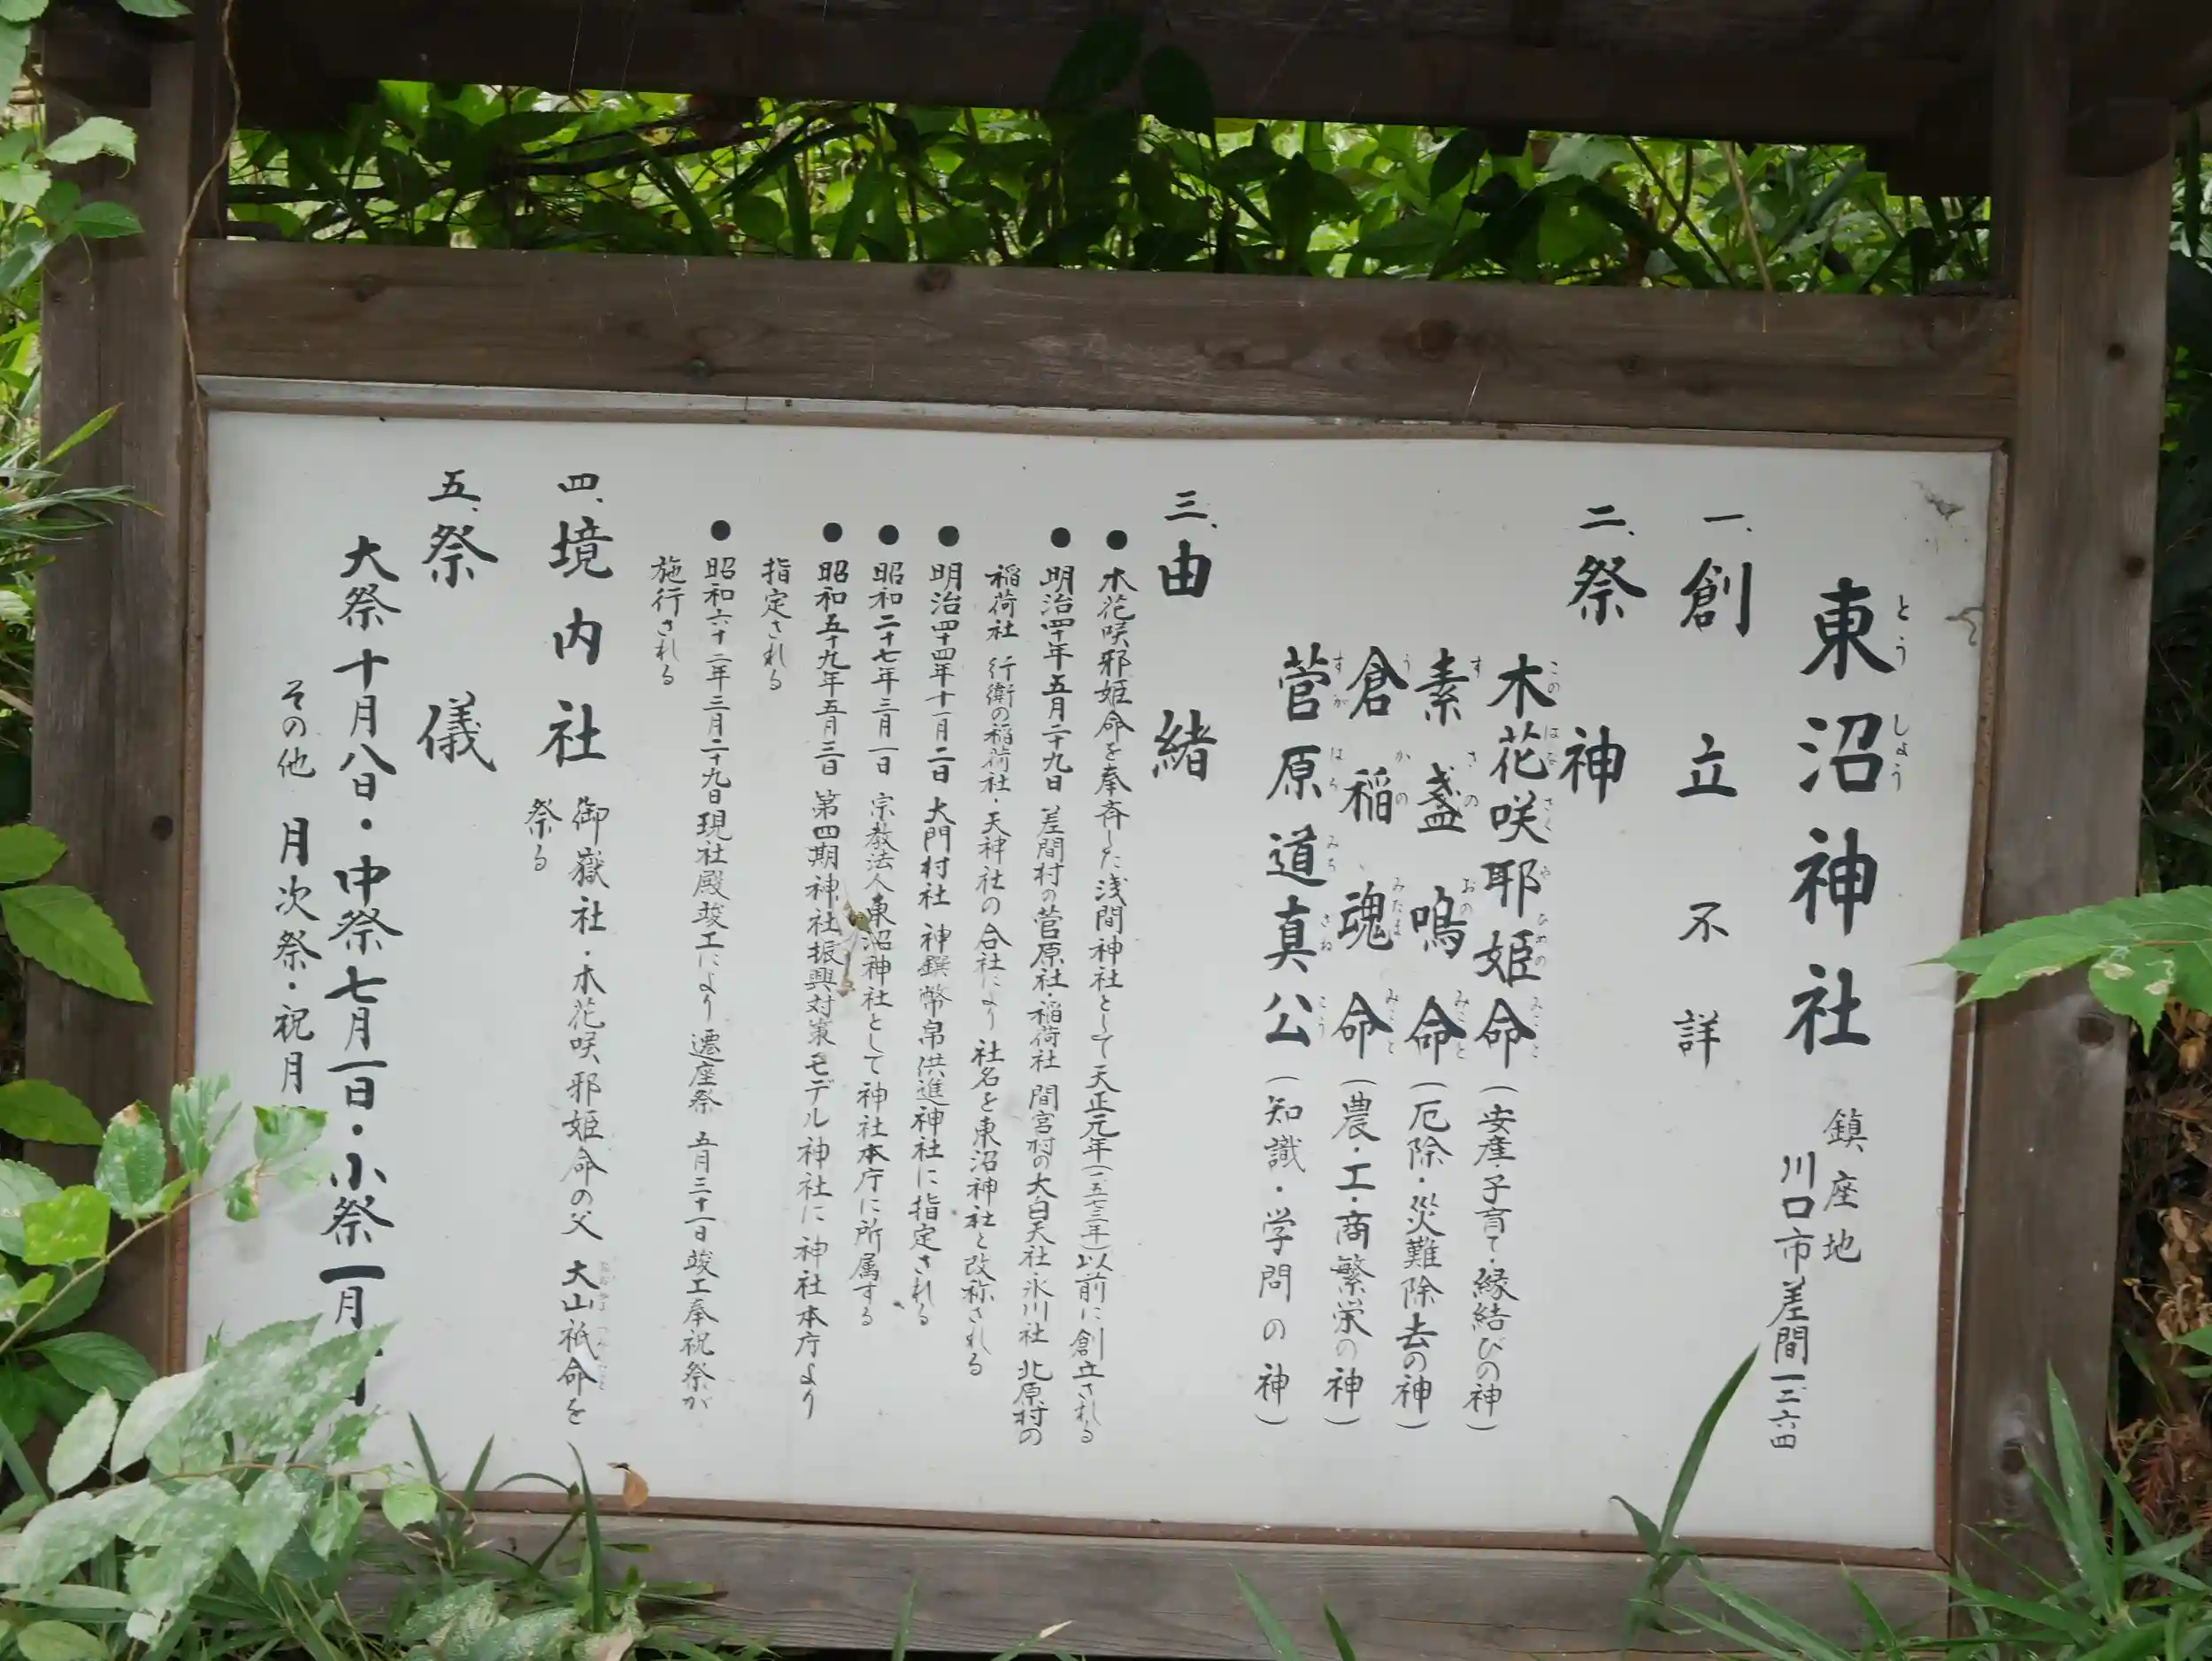 東沼神社
鎮座地
川口市差間一二六四
一、創立不詳
二、祭神
木花咲耶姫命（安産・子育て・縁結びの神）
素盞嗚命（厄除・災難除去の神）
倉稲魂命（農・工・商繁栄の神）
菅原道真公（知識・学問の神）
三、由緒
●木花咲耶姫命を奉斉した浅間神社として天正元年（一五七三年）以前に創立される
●明治四十年五月二十九日 差間村の菅原社・稲荷社 間宮村の大白天社・氷川社 北原村の
稲荷社 行衛の稲荷社・天神社の合社により 社名を東沼神社と改称される
●明治四十四年十一月二日 大門村社 神饌幣帛供進神社に指定される
●昭和二十七年三月一日 宗教法人東沼神社として神社本庁に所属する
●昭和五十九年五月三日 第四期神社振興対策モデル神社に神社本庁より
指定される
●昭和六十二年三月二十九日現社殿竣工により 遷座祭 五月三十一日竣工奉祝祭が
施行される
四、境内社 御嶽社・木花咲耶姫命の父 大山祇命を
祭る
五、祭儀
大祭十月八日・中祭七月一日・小祭一月
その他 月次祭・祝月